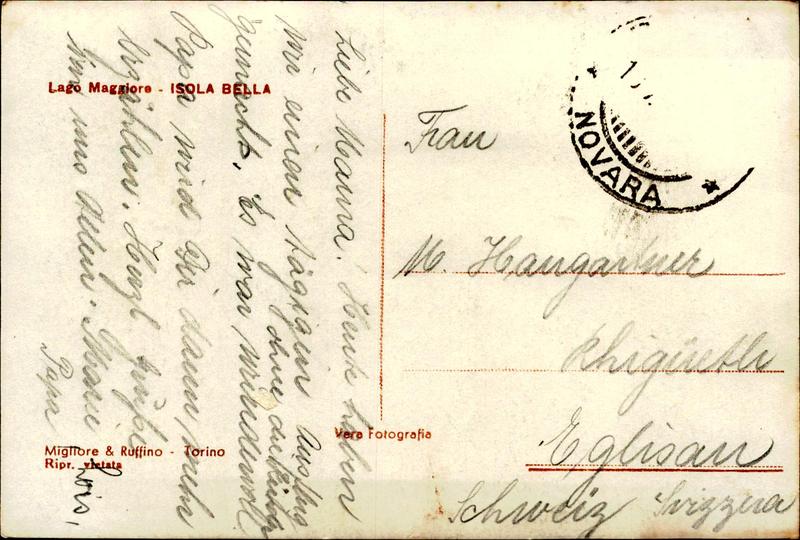 Lago Maggiore - ISOLA BELLA
Liebe Mama! Heute haben
wir einen tägigen Ausflug
ohne die Kinder
gemacht. Es war wundervoll.
Papa wird Dir dann mehr
erzählen. Herzl. Grüße
von uns allen. Marie
Papa
Migliore & Ruffino - Torino
Ripr. vietata
Vera Fotografia
NOVARA
Frau
M. Hangartner
Rhigüetli
Eglisau
Schweiz Svizzera